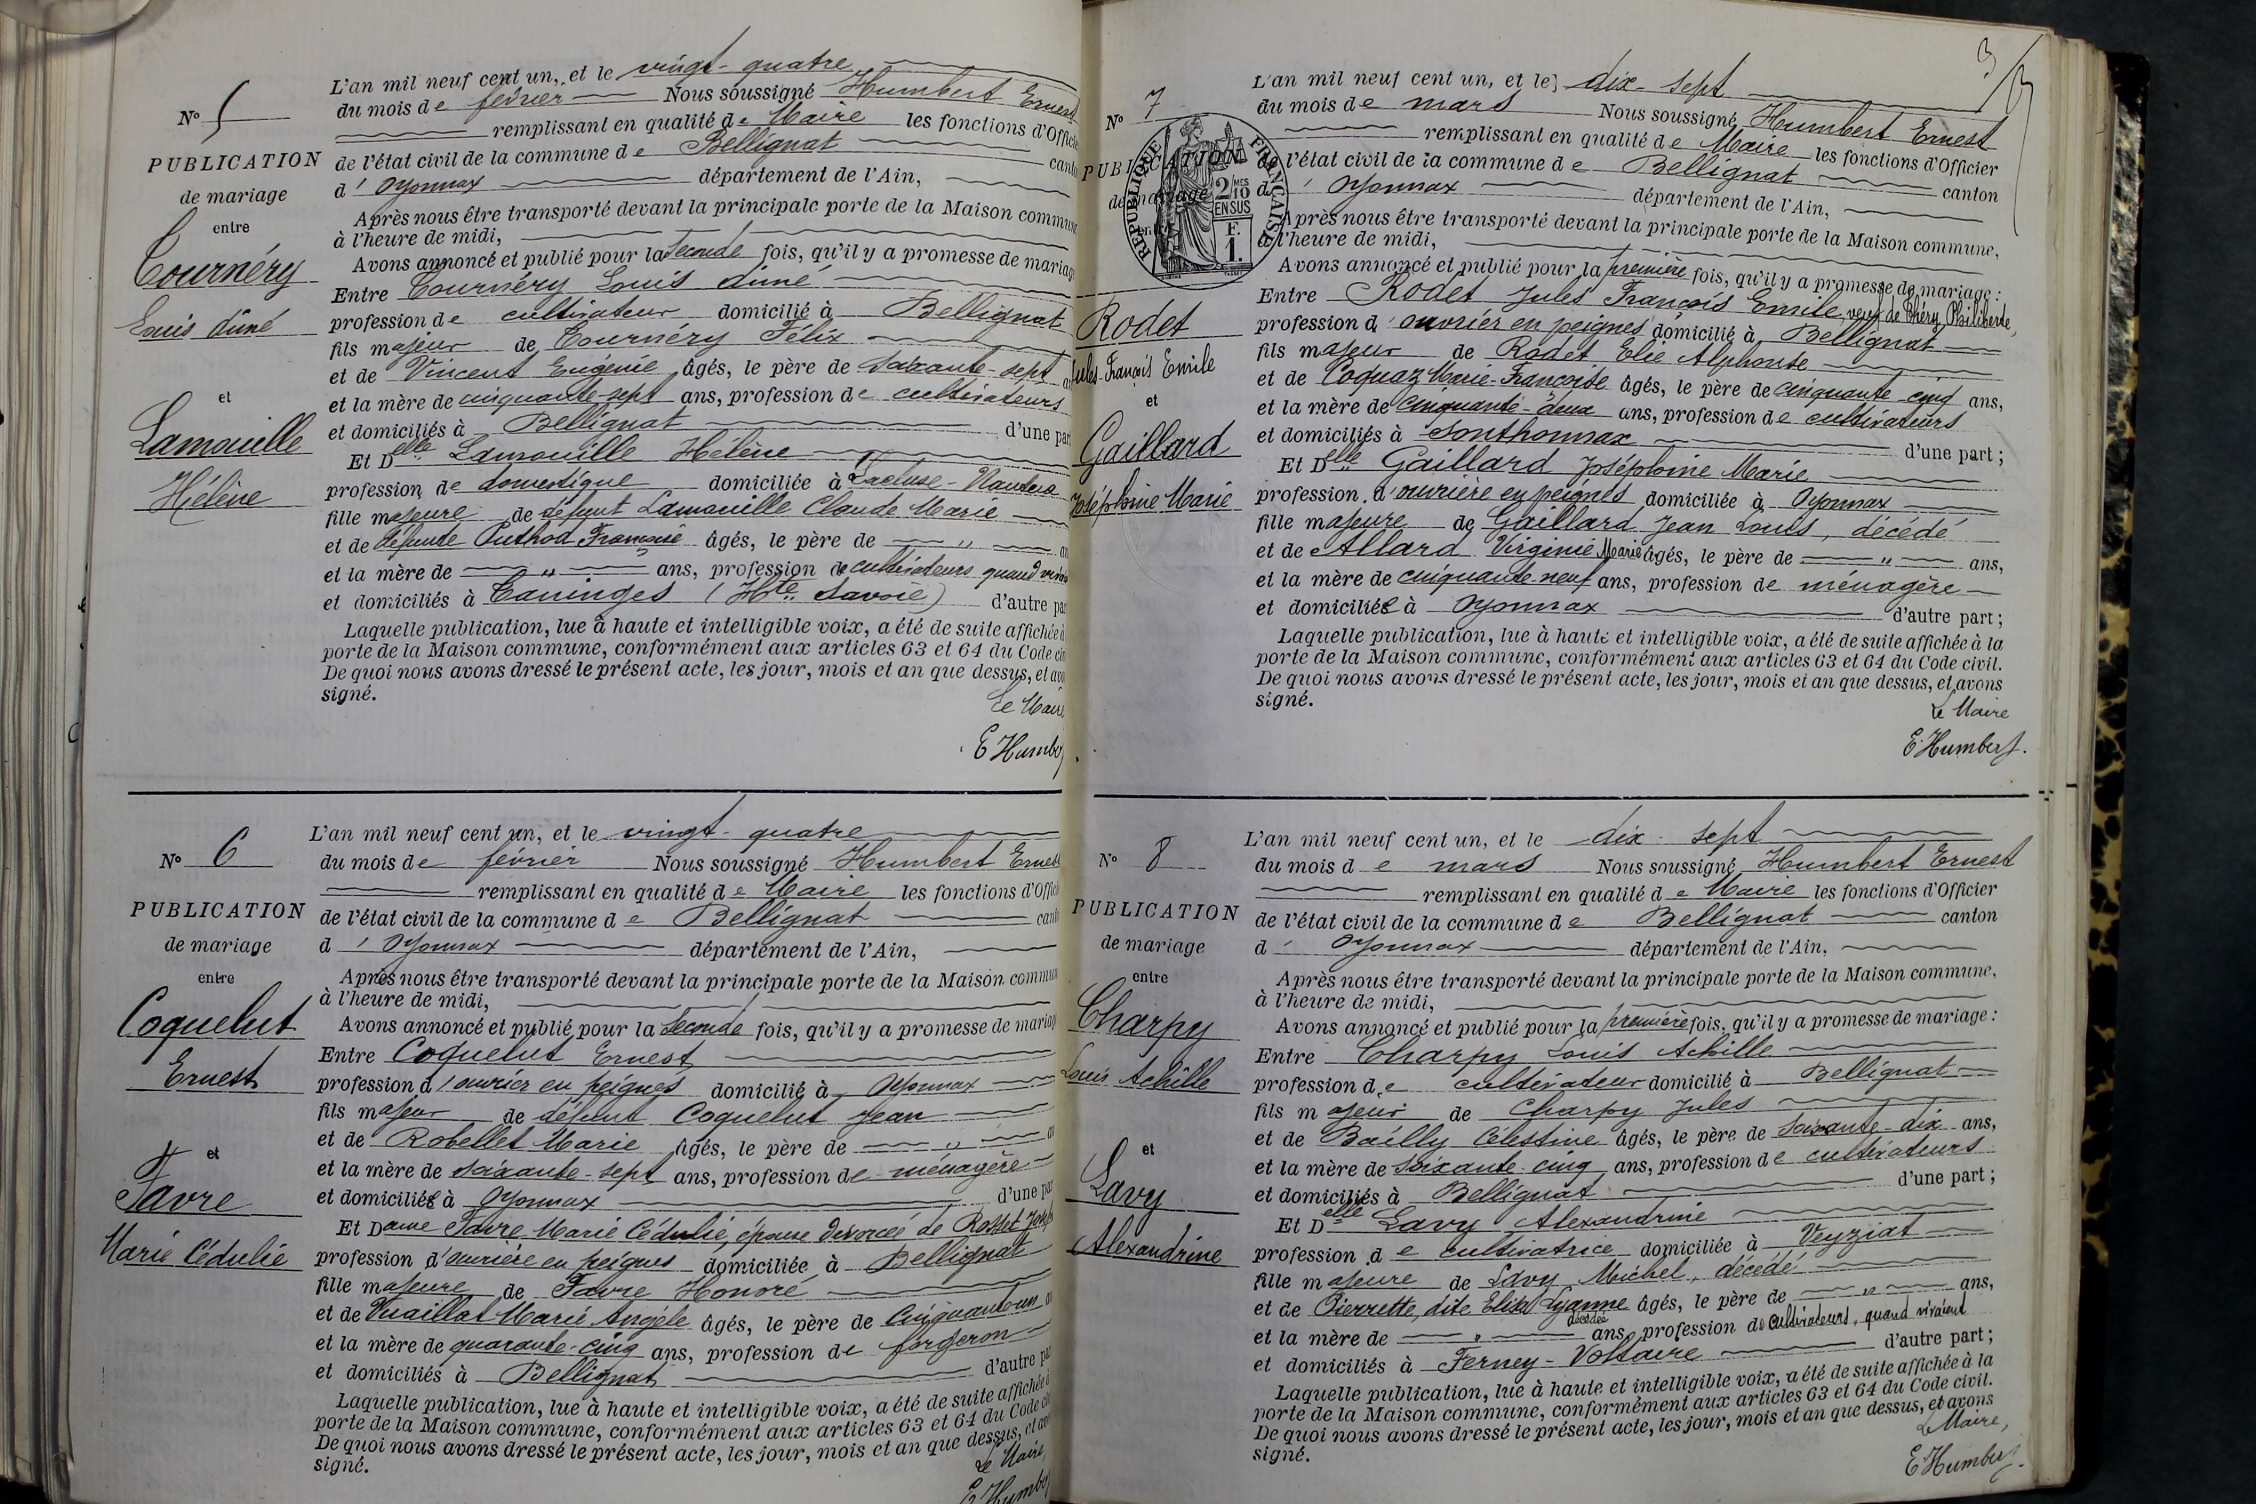 L'an mil neuf cent un, et le vingt-quatre
du mois de février Nous soussigné Humbert Ernest
remplissant en qualité de Maire les fonctions d'Officie
de l'état civil de la commune de Bellignat canto
d'Oyonnax département de l'Ain,
Après nous être transporté devant la principale porte de la Maison commune
à l'heure de midi,
Avons annoncé et publié pour la seconde fois, qu'il y a promesse de mariage
Entre Tournéry Louis Aimé
profession de cultivateur domicilié à Bellignat
fils majeur de Tournéry Félix
et de Vincent Eugénie âgés, le père de soixante-sept
et la mère de cinquante-sept ans, profession de cultivateurs
et domiciliés à Bellignat d'une par
Et Delle Lamouille Hélène
profession de domestique domiciliée à Lacluse-Nantua
fille majeure de défunt Lamouille Claude Marie
et de défunte Puthod Françoise âgés, le père de "
et la mère de " ans, profession de cultivateurs quand
et domiciliés à Taninges (Hte Savoie) d'autre par
Laquelle publication, lue à haute et intelligible voix, a été de suite affichée à
porte de la Maison commune, conformément aux articles 63 et 64 du Code ci
De quoi nous avons dressé le présent acte, les jour, mois et an que dessus, et avo
signé.
Le Maire
E Humber
No 5
PUBLICATION
de mariage
entre
Tournéry
Louis Aimé
et
Lamouille
Hélène
L'an mil neuf cent un, et le vingt-quatre
du mois de février Nous soussigné Humbert Ernest
remplissant en qualité de Maire les fonctions d'Offici
de l'état civil de la commune de Bellignat cant
d'Oyonnax département de l'Ain,
Après nous être transporté devant la principale porte de la Maison commun
à l'heure de midi,
Avons annoncé et publié pour la seconde fois, qu'il y a promesse de mariag
Entre Coquelut Ernest
profession d'ouvrier en peignes domicilié à Oyonnax
fils majeur de défunt Coquelut Jean
et de Robellet Marie âgés, le père de "
et la mère de soixante-sept ans, profession de ménagère
et domiciliée à Oyonnax d'une par
Et Dame Favre Marie Cédulie, épouse divorcée de Rosset
profession d'ouvrière en peignes domiciliée à Bellignat
fille majeure de Favre Honoré
et de Vuaillat Marie Angèle âgés, le père de cinquante un
et la mère de quarante-cinq ans, profession de forgeron
et domiciliés à Bellignat d'autre pa
Laquelle publication, lue à haute et intelligible voix, a été de suite affichée à
porte de la Maison commune, conformément aux articles 63 et 64 du Code ci
De quoi nous avons dressé le présent acte, les jour, mois et an que dessus, et avo
signé.
Le Maire,
E Humber
No 6
PUBLICATION
de mariage
entre
Coquelut
Ernest
et
Favre
Marie Cédulie
3
L'an mil neuf cent un, et le dix-sept
du mois de mars Nous soussigné Humbert Ernest
remplissant en qualité de Maire les fonctions d'Officier
de l'état civil de la commune de Bellignat canton
d'Oyonnax département de l'Ain,
Après nous être transporté devant la principale porte de la Maison commune,
à l'heure de midi,
Avons annoncé et publié pour la première fois, qu'il y a promesse de mariage :
Entre Rodet Jules François Emile, veuf de Théry Philiberte,
profession d'ouvrier en peignes domicilié à Bellignat
fils majeur de Rodet Elie Alphonse
et de Coquaz Marie-Françoise âgés, le père de cinquante-cinq ans,
et la mère de cinquante-deux ans, profession de cultivateurs
et domiciliés à Sonthonnax d'une part ;
Et Delle Gaillard Joséphine Marie
profession d'ouvrière en peignes domiciliée à Oyonnax
fille majeure de Gaillard Jean Louis, décédé
et de Allard Virginie Marie âgés, le père de " ans,
et la mère de cinquante-neuf ans, profession de ménagère
et domiciliée à Oyonnax d'autre part ;
Laquelle publication, lue à haute et intelligible voix, a été de suite affichée à la
porte de la Maison commune, conformément aux articles 63 et 64 du Code civil.
De quoi nous avons dressé le présent acte, les jour, mois et an que dessus, et avons
signé.
Le Maire
E Humbert.
No 7
PUBLICATION
de mariage
entre
RÉPUBLIQUE FRANÇAISE
2/10 MES
EN SUS
F.
1.
Rodet
Jules-François Emile
et
Gaillard
Joséphine Marie
L'an mil neuf cent un, et le dix-sept
du mois de mars Nous soussigné Humbert Ernest
remplissant en qualité de Maire les fonctions d'Officier
de l'état civil de la commune de Bellignat canton
d'Oyonnax département de l'Ain,
Après nous être transporté devant la principale porte de la Maison commune,
à l'heure de midi,
Avons annoncé et publié pour la première fois, qu'il y a promesse de mariage :
Entre Charpy Louis Achille
profession de cultivateur domicilié à Bellignat
fils majeur de Charpy Jules
et de Bailly Célestine âgés, le père de soixante-dix ans,
et la mère de soixante-cinq ans, profession de cultivateurs
et domiciliés à Bellignat d'une part ;
Et Delle Lavy Alexandrine
profession de cultivatrice domiciliée à Veyziat
fille majeure de Lavy Michel, décédé
et de Pierrette, dite Eliza Lyanne décédée âgés, le père de " ans,
et la mère de " ans, profession de cultivateurs, quand vivaient
et domiciliés à Ferney-Voltaire d'autre part ;
Laquelle publication, lue à haute et intelligible voix, a été de suite affichée à la
porte de la Maison commune, conformément aux articles 63 et 64 du Code civil.
De quoi nous avons dressé le présent acte, les jour, mois et an que dessus, et avons
signé.
Le Maire,
E Humbert.
No 8
PUBLICATION
de mariage
entre
Charpy
Louis Achille
et
Lavy
Alexandrine